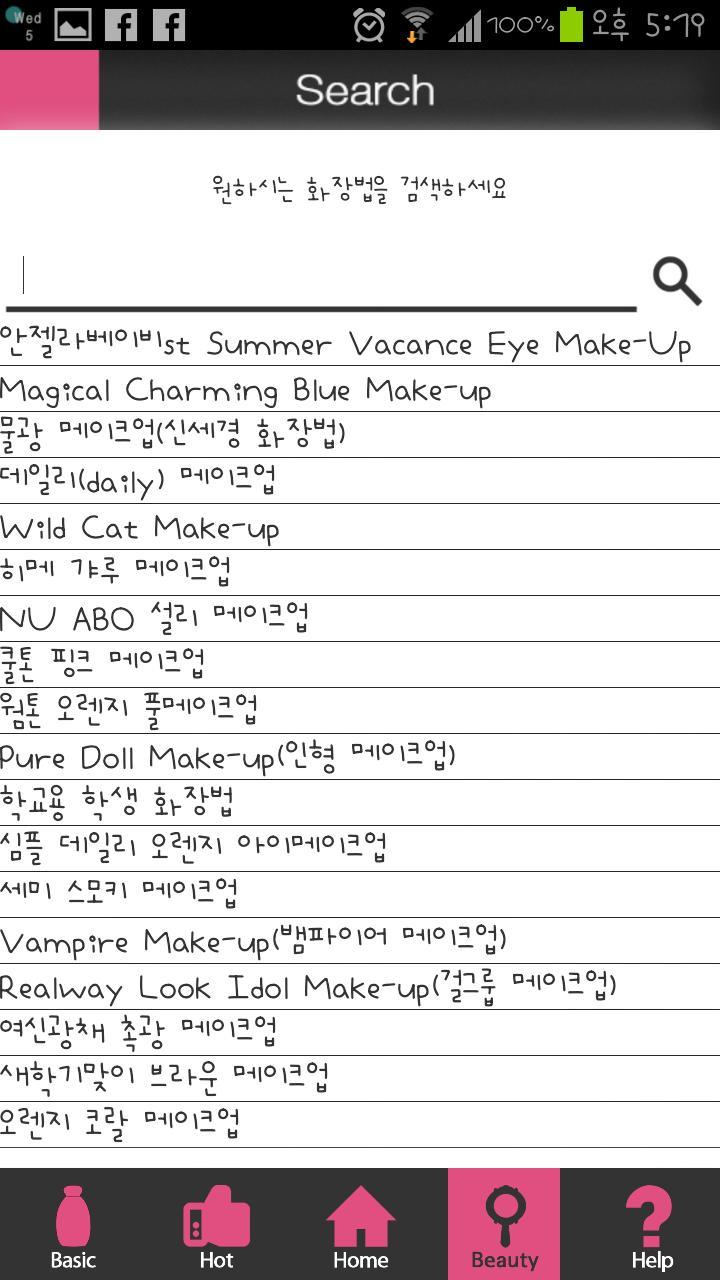 Wed
5
100% 오후 5:19
Search
원하시는 화장법을 검색하세요
안젤라베이비st Summer Vacance Eye Make-Up
Magical Charming Blue Make-up
물광 메이크업(신세경 화장법)
데일리(daily) 메이크업
Wild Cat Make-up
히메 갸루 메이크업
NU ABO 설리 메이크업
쿨톤 핑크 메이크업
웜톤 오렌지 풀메이크업
Pure Doll Make-up(인형 메이크업)
학교용 학생 화장법
심플 데일리 오렌지 아이메이크업
세미 스모키 메이크업
Vampire Make-up(뱀파이어 메이크업)
Realway Look Idol Make-up(걸그룹 메이크업)
여신광채 촉광 메이크업
새학기맞이 브라운 메이크업
오렌지 코랄 메이크업
Basic Hot Home Beauty Help